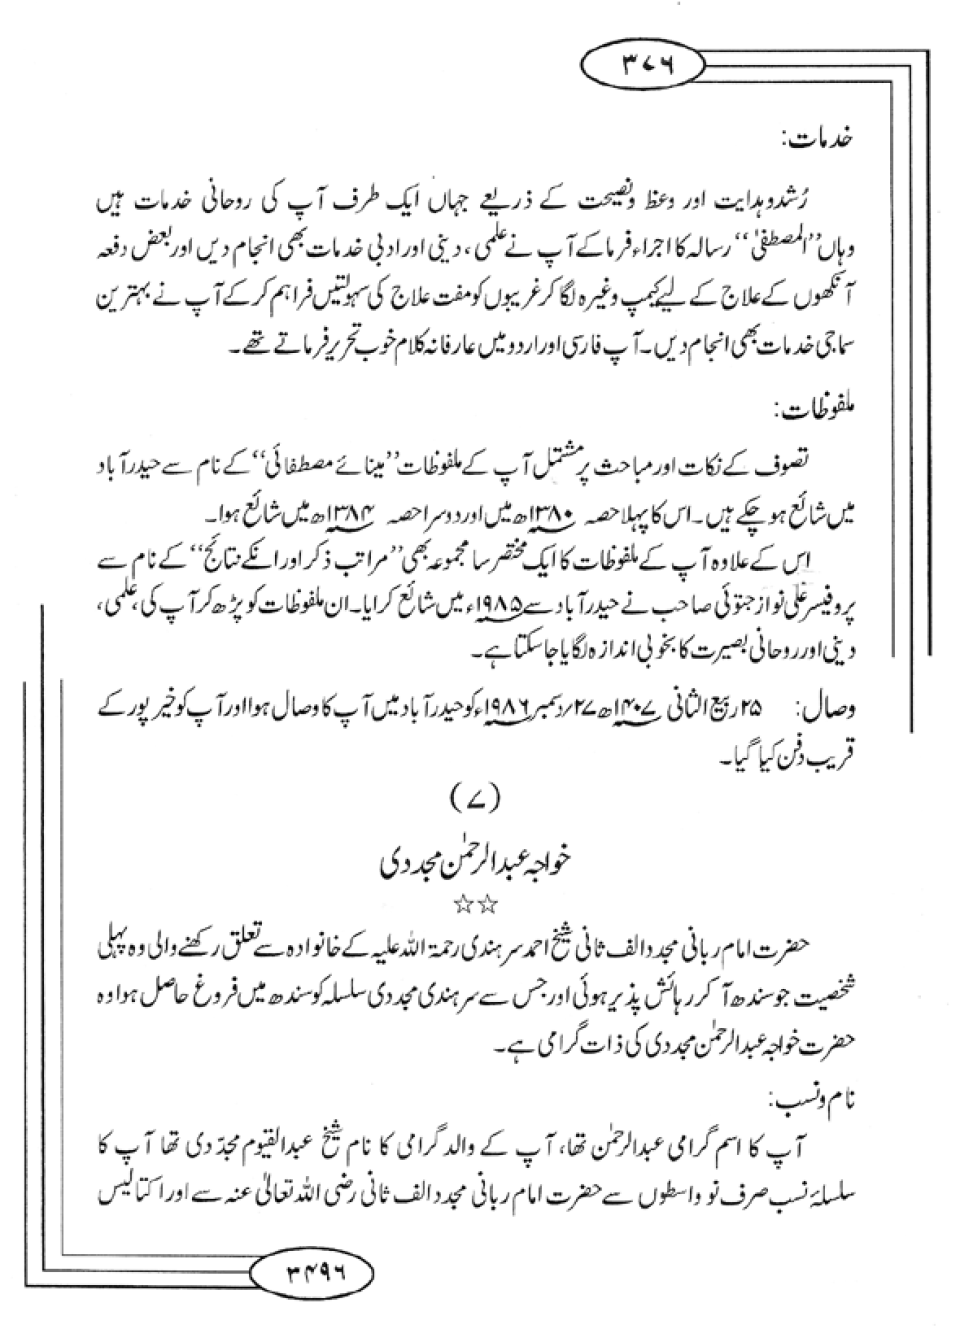 ۳۷۶
خدمات:
رُشد و ہدایت اور وعظ و نصیحت کے ذریعے جہاں ایک طرف آپ کی روحانی خدمات ہیں
وہاں ”المصطفیٰ“ رسالہ کا اجراء فرما کے آپ نے علمی ، دینی اور ادبی خدمات بھی انجام دیں اور بعض دفعہ
آنکھوں کے علاج کے لیے کیمپ وغیرہ لگا کر غریبوں کو مفت علاج کی سہولتیں فراہم کر کے آپ نے بہترین
سماجی خدمات بھی انجام دیں۔ آپ فارسی اور اردو میں عارفانہ کلام خوب تحریر فرماتے تھے۔
ملفوظات:
تصوف کے نکات اور مباحث پر مشتمل آپ کے ملفوظات ”مینائے مصطفائی“ کے نام سے حیدرآباد
میں شائع ہو چکے ہیں۔ اس کا پہلا حصہ ۱۳۸۰ھ میں اور دوسرا حصہ ۱۳۸۴ھ میں شائع ہوا۔
اس کے علاوہ آپ کے ملفوظات کا ایک مختصر سا مجموعہ بھی ”مراتب ذکر اور انکے نتائج“ کے نام سے
پروفیسر علی نواز جتوئی صاحب نے حیدرآباد سے ۱۹۸۵ء میں شائع کرایا۔ ان ملفوظات کو پڑھ کر آپ کی، علمی،
دینی اور روحانی بصیرت کا بخوبی اندازہ لگایا جا سکتا ہے۔
وصال: ۲۵ ربیع الثانی ۱۴۰۷ھ ۲۷/دسمبر ۱۹۸۶ء کو حیدرآباد میں آپ کا وصال ہوا اور آپ کو خیر پور کے
قریب دفن کیا گیا۔
(۷)
خواجہ عبدالرحمٰن مجددی
☆☆
حضرت امام ربانی مجدد الف ثانی شیخ احمد سرہندی رحمۃ اللہ علیہ کے خانوادہ سے تعلق رکھنے والی وہ پہلی
شخصیت جو سندھ آ کر رہائش پذیر ہوئی اور جس سے سرہندی مجددی سلسلہ کو سندھ میں فروغ حاصل ہوا وہ
حضرت خواجہ عبدالرحمٰن مجددی کی ذات گرامی ہے۔
نام و نسب:
آپ کا اسم گرامی عبدالرحمٰن تھا، آپ کے والد گرامی کا نام شیخ عبدالقیوم مجدّدی تھا آپ کا
سلسلۂ نسب صرف نو واسطوں سے حضرت امام ربانی مجدد الف ثانی رضی اللہ تعالیٰ عنہ سے اور اکتالیس
۳۴۹۶